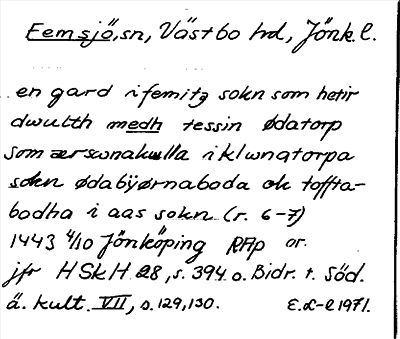 Femsjö, sn, Västbo hd, Jönk. l.
en gard i femitz sokn som hetir
dwulth medh tessin ødatorp
som ærswnakulla i klwnatorpa
sokn ødabijørnaboda ok toffta-
bodha i aas sokn (r. 6-7)
1443 4/10 Jönköping RAp or.
jfr HSkH 28, s. 394 o. Bidr. t. Söd.
ä. kult. VII, s. 129, 130. E.L-e 1971.